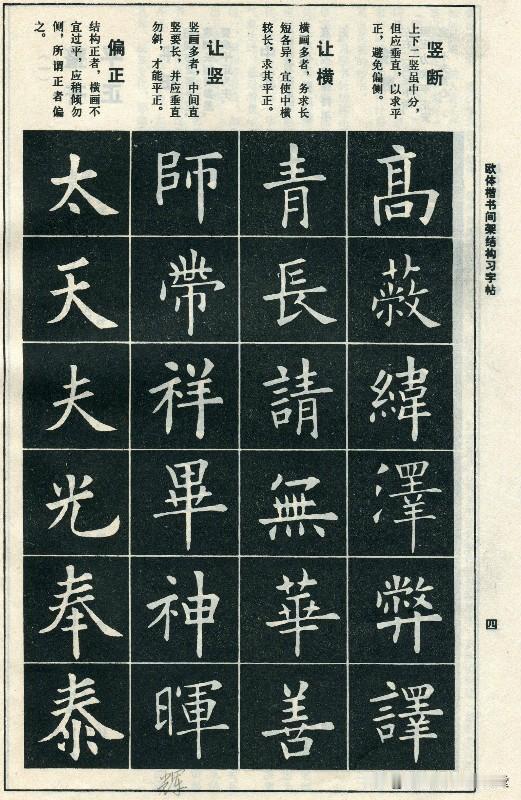 欧体楷书间架结构习字帖
四
竖断
上下二竖虽中分，
但应垂直，以求平
正，避免偏侧。
髙蔽緯澤弊譯
让横
横画多者，务求长
短各异，宜使中横
较长，求其平正。
青長請無華善
让竖
竖画多者，中间直
竖要长，并应垂直
勿斜，才能平正。
師帶祥畢神暉
辉
偏正
结构正者，横画不
宜过平，应稍倾勿
侧，所谓正者偏
之。
太天夫光奉泰